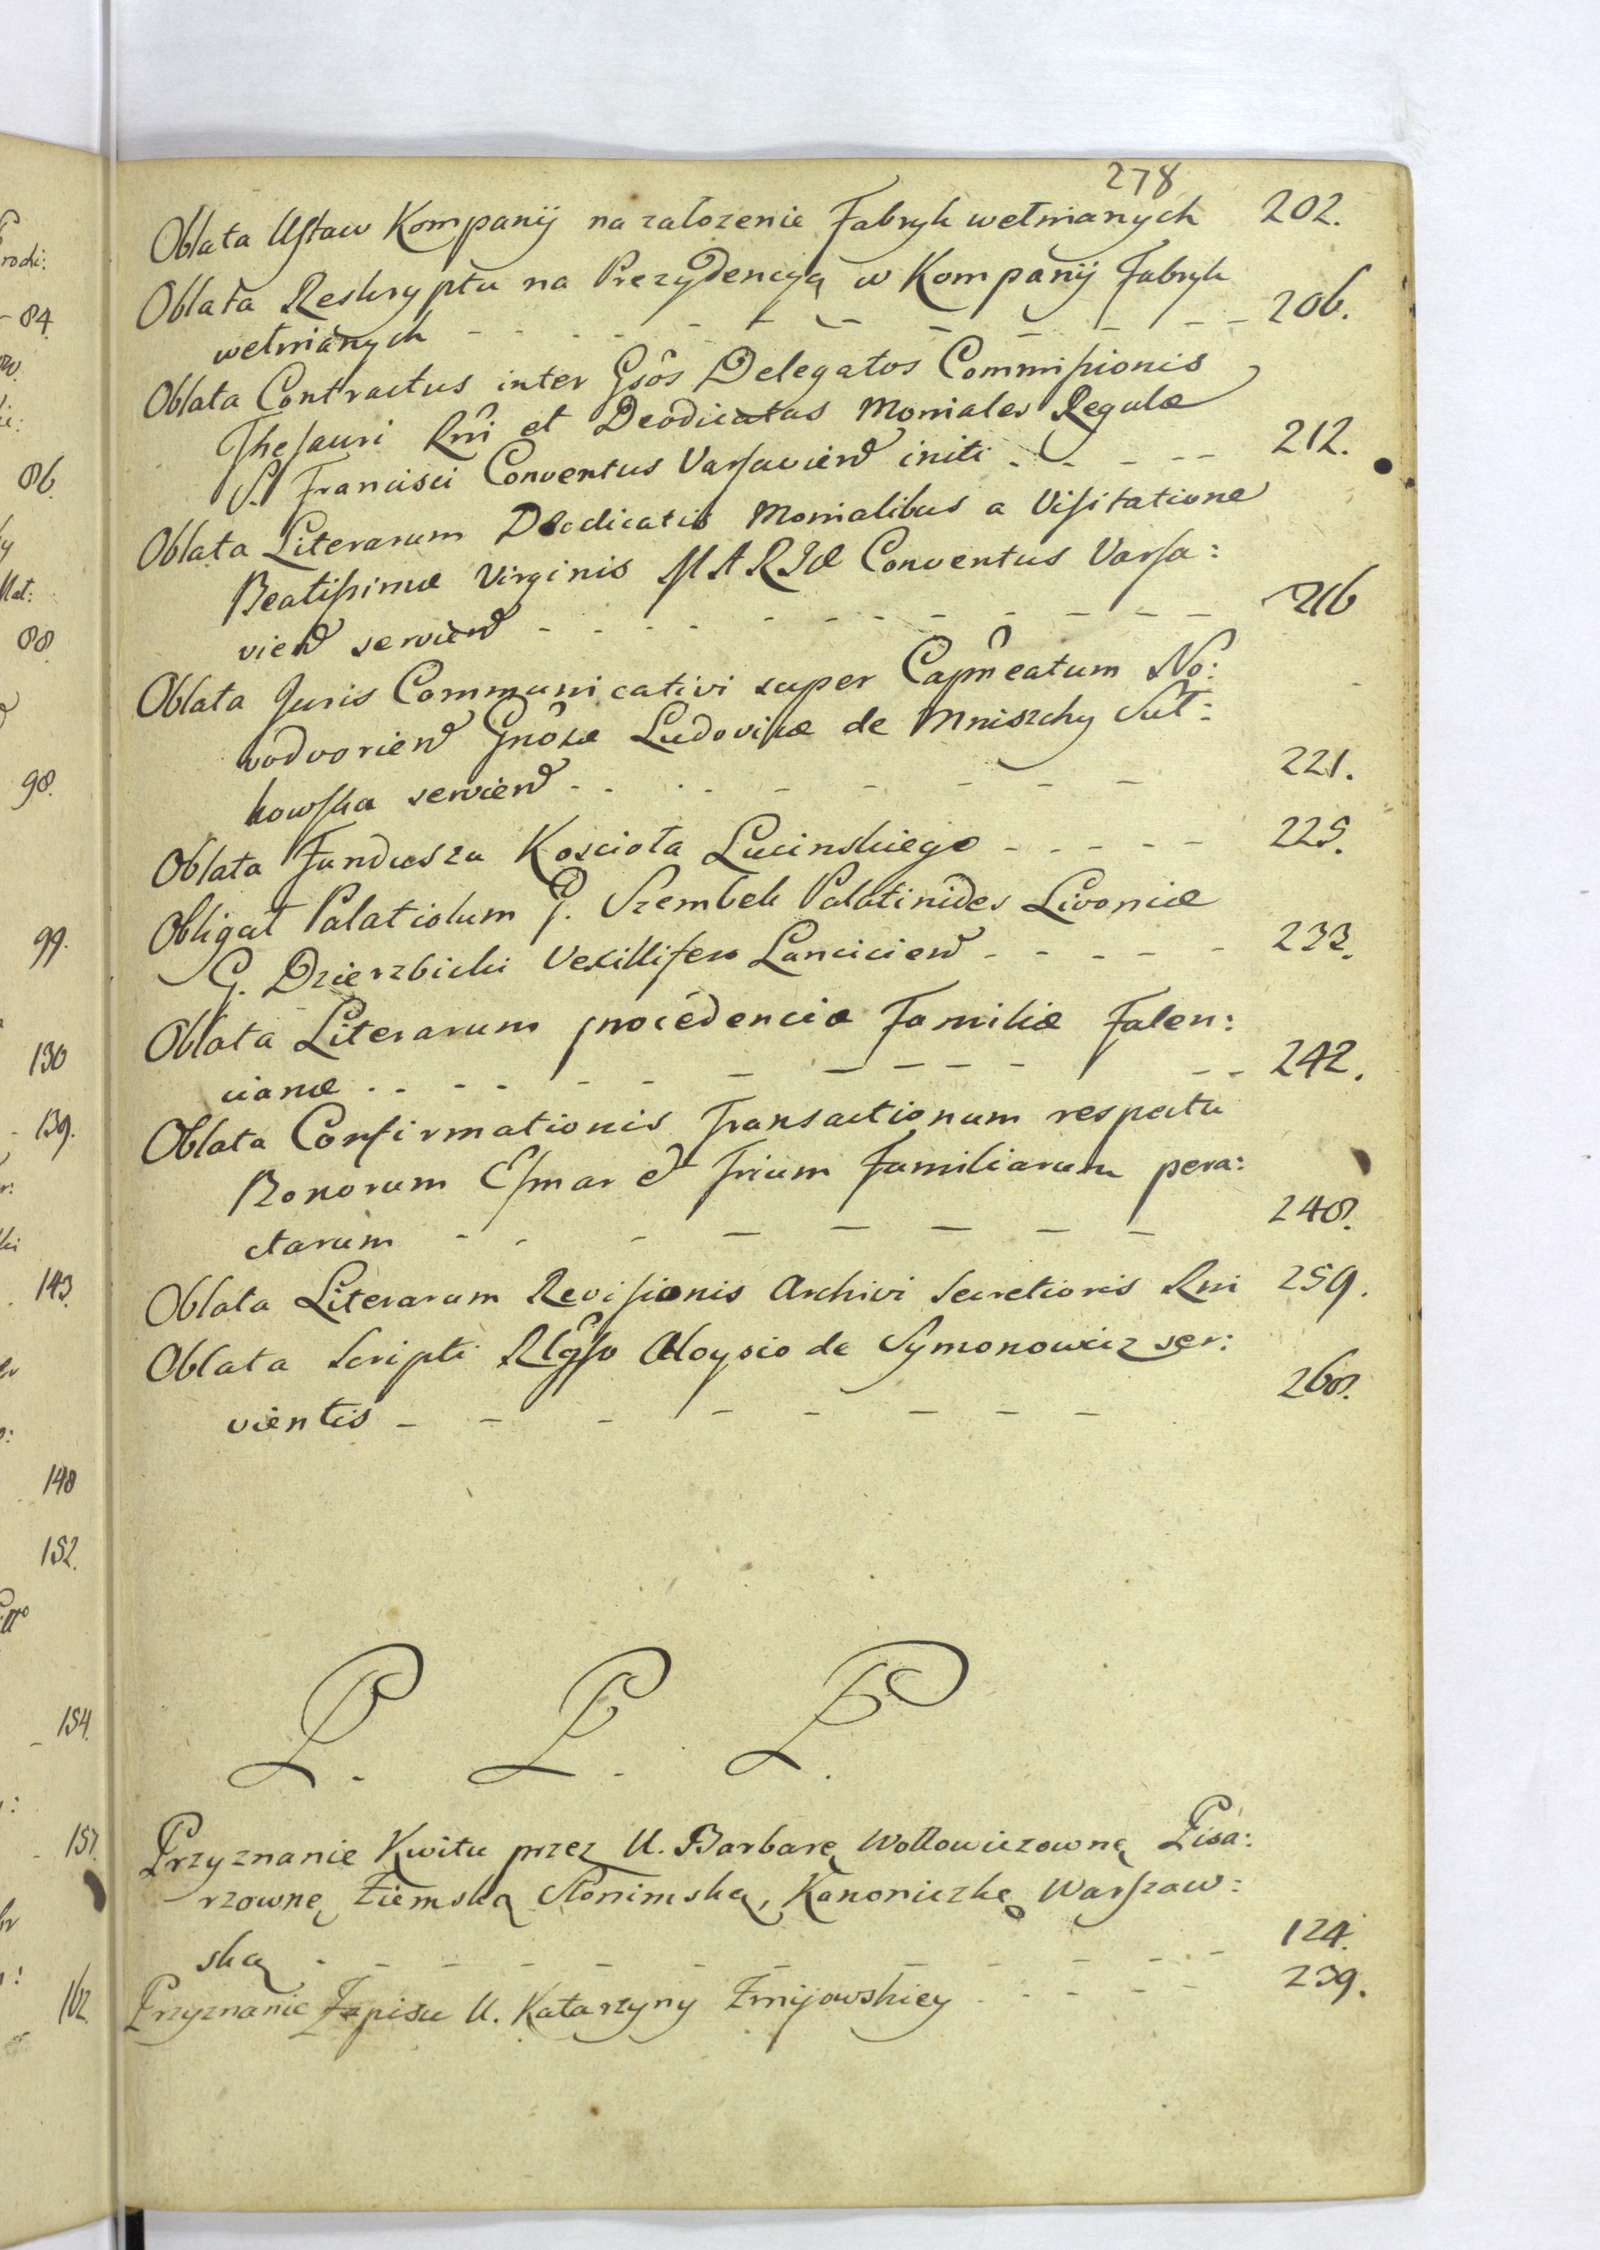 278
Oblata Ustaw Kompanij na zalozenie Fabryk wełnianych 202.
Oblata Reskryptu na Prezydencyą w Kompanij Fabryk
wełnianych - - - - - - - - - 206.
Oblata Contractus inter Gsôs Delegatos Commissionis
Thesauri Rnî et Deodicatas Moniales Regulæ
S. Francisci Conventus Varsavien initi - - - - - 212.
Oblata Literarum Deodicatis Monialibus a Visitatione
Beatissimæ Virginis MARIÆ Conventus Varsa:
vien servien - - - - - - - - - 216
Oblata Juris Communicativi super Capñeatum No:
vodvorien Gnôsæ Ludovicæ de Mniszchy Sut:
kowska servien - - - - - - - 221.
Oblata Funduszu Kosciola Lucinskiego - - - - - 225.
Obligat Palatiolum G. Szembek Palatinides Livoniæ
G. Dzierzbicki Vexillifero Lancicien - - - - - 233.
Oblata Literarum procedenciæ Familiæ Falen:
cianæ - - - - - - - - - - 242.
Oblata Confirmationis Transactionum respectu
Bonorum Esmar et Trium Familiarum pera:
ctarum - - - - - - - - 248.
Oblata Literarum Revisionis Archivi Secretioris Rni 259.
Oblata Scripti Aloysio de Symonowicz ser:
vientis - - - - - - - - 268.
P. P. P.
Przyznanie Kwitu przez U. Barbarę Wołłowiczownę Pisa:
rzownę Ziemską Słonimską, Kanoniczkę Warszaw:
ską - - - - - - - - - 124.
Przyznanie Zapisu U. Katarzyny Żmijowskiey - - - - 239.